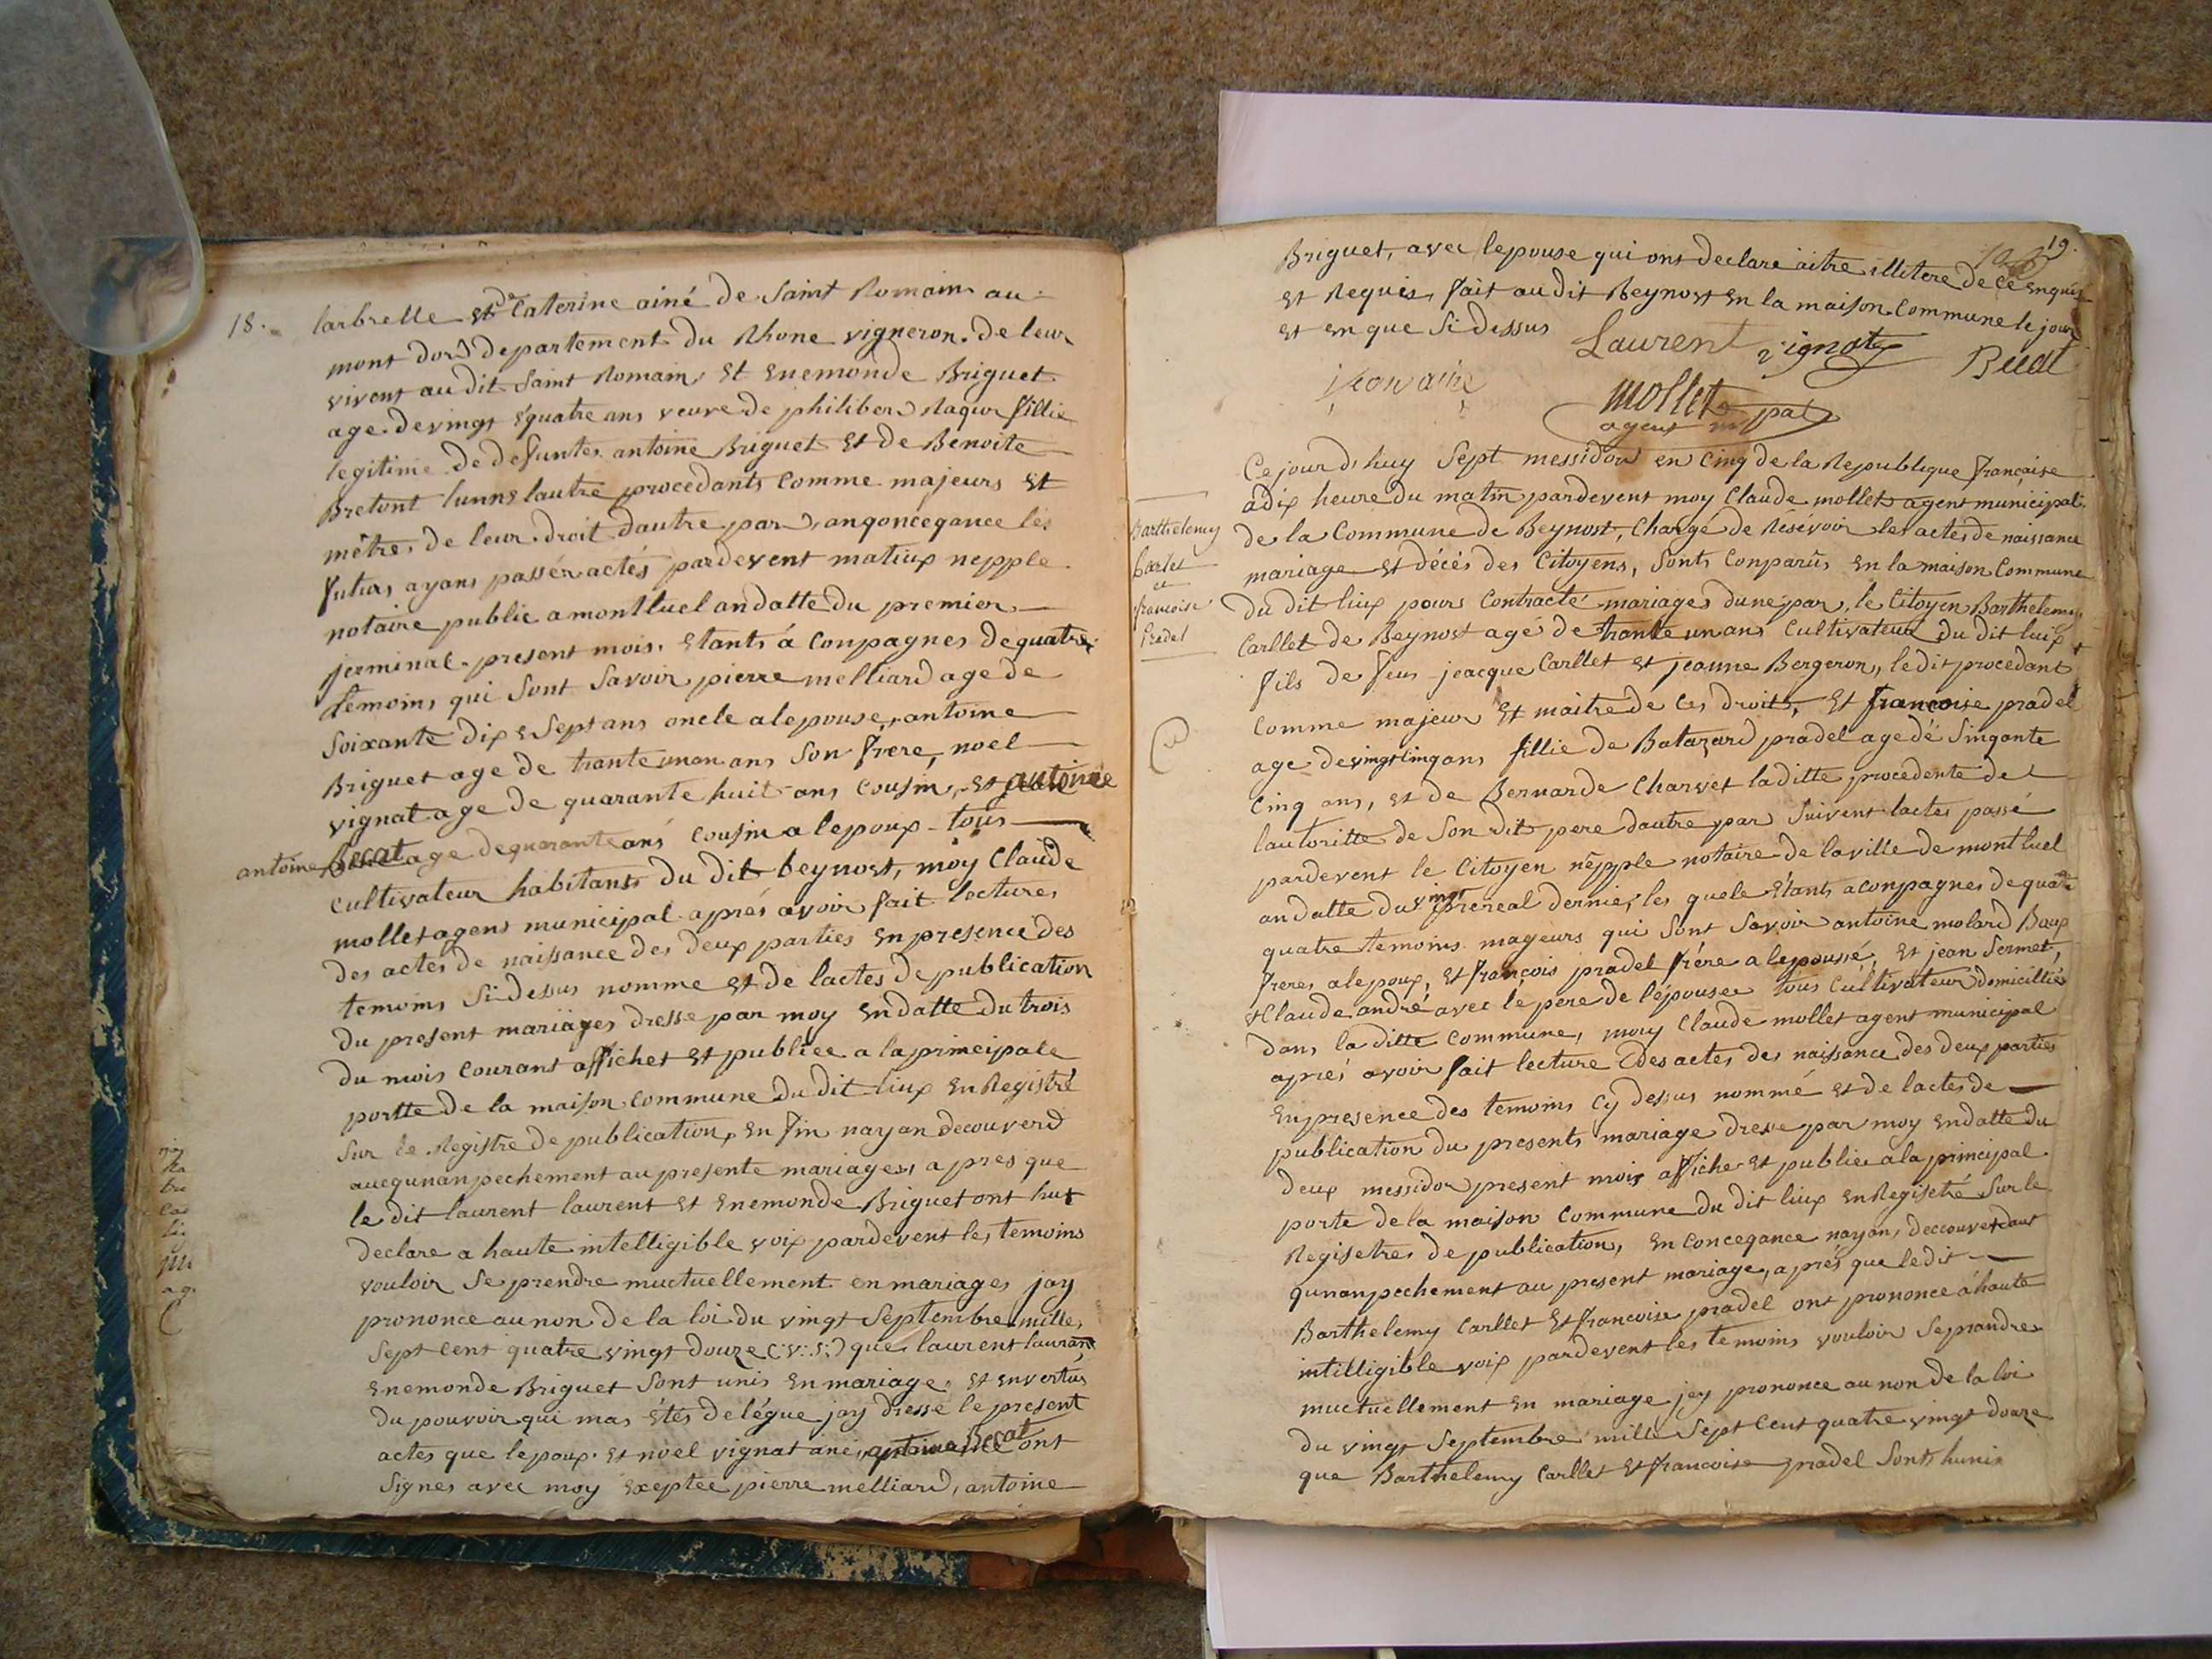 18.
larbrelle et de Caterine ainé de Saint Romain au
mont dor departement du Rhone vigneron de leur
vivent au dit Saint Romain Et Enemonde Briguet
age de vingt equatre ans veuve de philiber Raquor fillie
legitime de defuntes antoine Briguet Et de Benoite
Bretont lunne lautre procedants Comme majeurs Et
mêtres de leur droit dautre par, anqoncegance les
futurs ayans passér actés pardevent matiux nepple
notaire public a montluel andatte du premier
jerminal present mois. Etants á Conpagnes de quatre
temoins qui Sont Savoir pierre melliard age de
Soixante dix e Sept ans oncle alepouse, antoine
Briguet age de trante un an ans Son frere, noel
vignat age de quarante huit ans Cousin, Et
antoine Becat age dequarante ans Cousin a lepoux tous
Cultivateur habitants du dit beynost, moy Claude
mollet agent municipal aprés avoir fait lectures
des actes de naissance des deux parties En presence des
temoins Si dessus nomme Et de lactes de publication
du present mariages dresse par moy Endatte du trois
du mois Courant affichet Et publiée a la principale
portte de la maison Commune du dit liux En Registré
Sur le Registre de publication, En fin nayan decouverd
aucqunanpechement au presente mariages, apres que
le dit laurent laurent Et Enemonde Briguet ont hut
declare a haute intelligible voix pardevent les temoins
vouloir Se prendre muctuellement en mariages jay
prononce aunon de la loi du vingt Septembre mille
Sept Cent quatre vingt douze (:v:s:) que laurent lauran
Enemonde Briguet Sont unis En mariage, Et Envertus
du pouvoir qui mas Étés delégue jay dressé le present
actes que lepoux Et noel vignat ané, antoine Becat ont
Signes avec moy Exeptee pierre melliard, antoine
19.
Briguet, avec lepouse qui ons declare aitre illitere de Ce enquis
Et Requis, fait au dit Beynost En la maison Commune le jour
Et en que Si dessus
Laurent
vignat
Becat
mollet
agent mpal
Ce jour dhuy Sept messidor en Cinq de la Republique française
adix heure du matin pardevent moy Claude mollet agent municipal
de la Commune de Beynost, Chargé de Résevoir les actes de naissance
mariage Et décés des Citoyens, Sonts Conparûs En la maison Commune
du dit liux pours Contracté mariages dunepar, le Citoyen Barthelemy
Carllet de Beynost agé de trante un ans Cultivateur du dit luix
fils de feus jeacque Carllet Et jeanne Bergeron, le dit procedant
Comme majeur Et maitre de Ces droits, Et francoise pradel
age de vingt Cinq ans fillie de Batazard pradel age dé Sinqante
Cinq ans, Et de Bernarde Charvet laditte procedente de
lautoritte de Son dit pere dautre par Suivent lactes passé
pardevent le Citoyen népple notaire de laville de montluel
andatte du vingt prereal dernier, les quele Étants aConpagnes de quatre
quatre temoins mageurs qui Sont Savoir antoine molard Baux
freres alepoux, Et françois pradel frére a lepoussé, Et jean Sermet,
Et Claude andré avec le pere de l'épousee tous Cultivateur domicillié
dans la ditte Commune, moy Claude mollet agent municipal
aprés avoir fait lecture des actes des naissance des deux parties
Enpresence des temoins Cy dessus nommé Et de lactes de
publication du presents mariage dresse par moy Endatte du
deux messidor present mois affiche Et publiée a la principal
porte de la maison Commune du dit liux EnRegisetré Sur le
Regisetres de publication, En Concegance nayans deccouvertaut
qunanpechement au present mariage, aprés que le dit
Barthelemy Carllet Et francoise pradel ont prononce á haute
intilligible voix pardevent les temoins vouloir Seprandre
muctuellement En mariage jey prononce aunon de la loi
du vingt Septembre mille Sept Cent quatre vingt douze
que Barthelemy Carllet Et francoise pradel Sonts hunis
Barthelemy
Carlet
et
francoise
Pradel